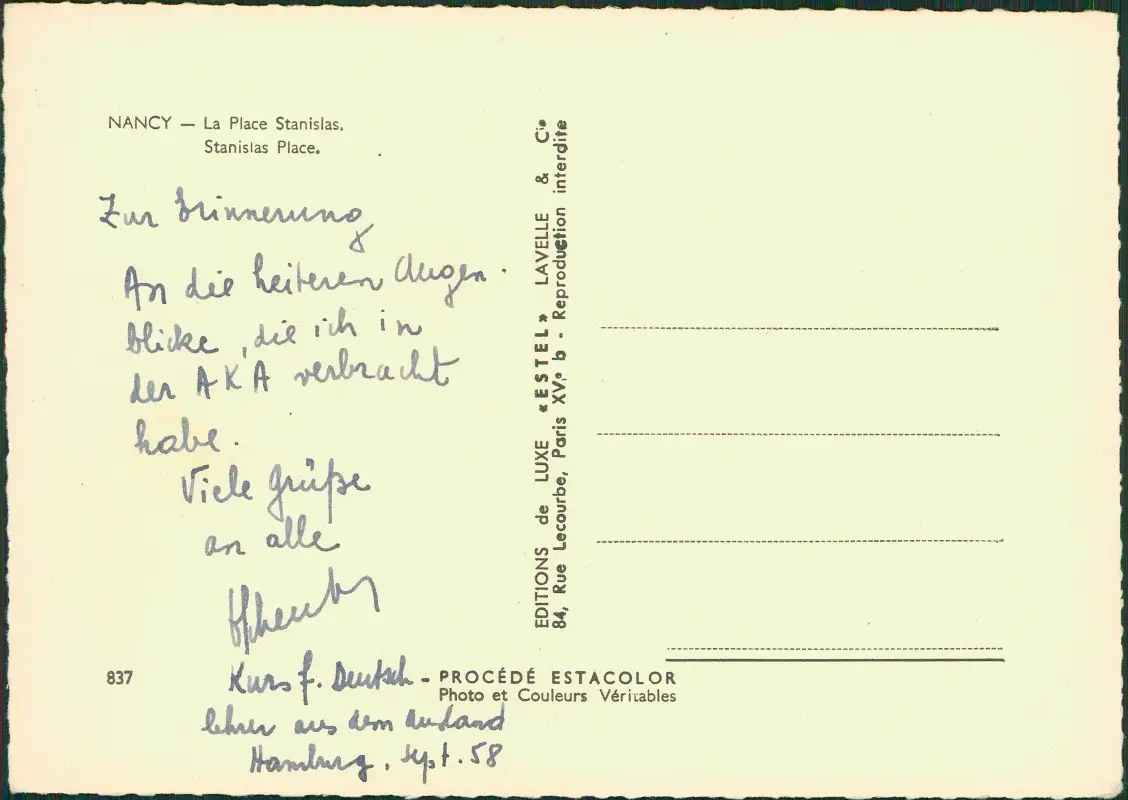 NANCY — La Place Stanislas.
Stanislas Place.
Zur Erinnerung
An die heiteren Augen-
blicke, die ich in
der AKA verbracht
habe.
Viele Grüße
an alle
Kurs f. Deutsch-
lehrer aus dem Ausland
Hamburg, Sept. 58
837
EDITIONS de LUXE «ESTEL» LAVELLE & Cie
84, Rue Lecourbe, Paris XV.e b - Reproduction interdite
PROCÉDÉ ESTACOLOR
Photo et Couleurs Véritables